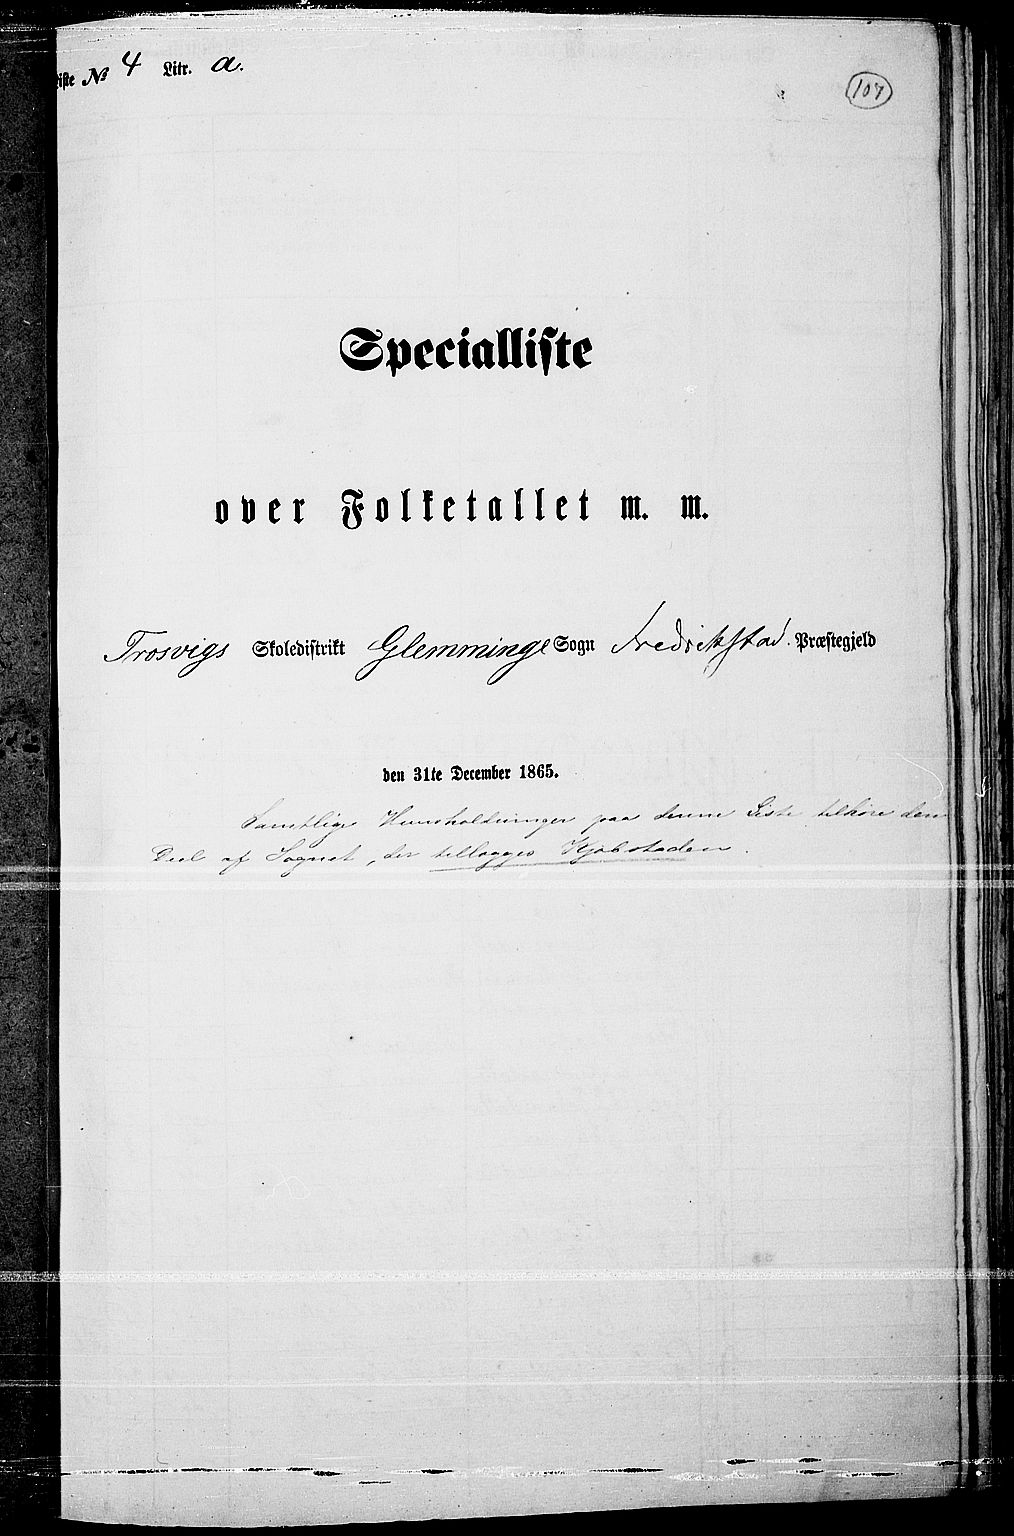 Liste № 4 Litr. a.
107
Specialliste
over Folketallet m. m.
Trosvigs Skoledistrikt Glemminge Sogn Fredrikstad. Præstegjeld
den 31te December 1865.
Samtlige Huusholdninger paa denne Liste tilhøre den
Deel af Sognet, der tillægges Kjøbstaden.